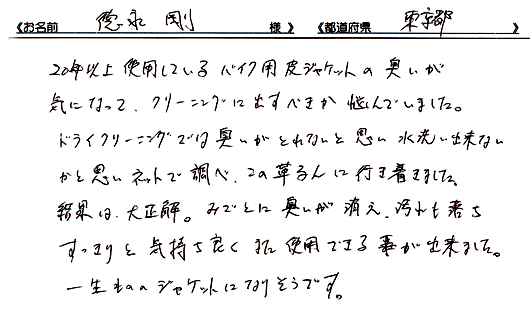 《お名前 徳永 剛 様 》 《都道府県 東京都 》
20年以上使用しているバイク用皮ジャケットの臭いが
気になって、クリーニングに出すべきか悩んでいました。
ドライクリーニングでは臭いがとれないと思い水洗い出来ない
かと思いネットで調べ、この革るんに行き着きました。
結果は、大正解。みごとに臭いが消え、汚れも落ち
すっきりと気持ち良くまた使用できる事が出来ました。
一生もののジャケットになりそうです。